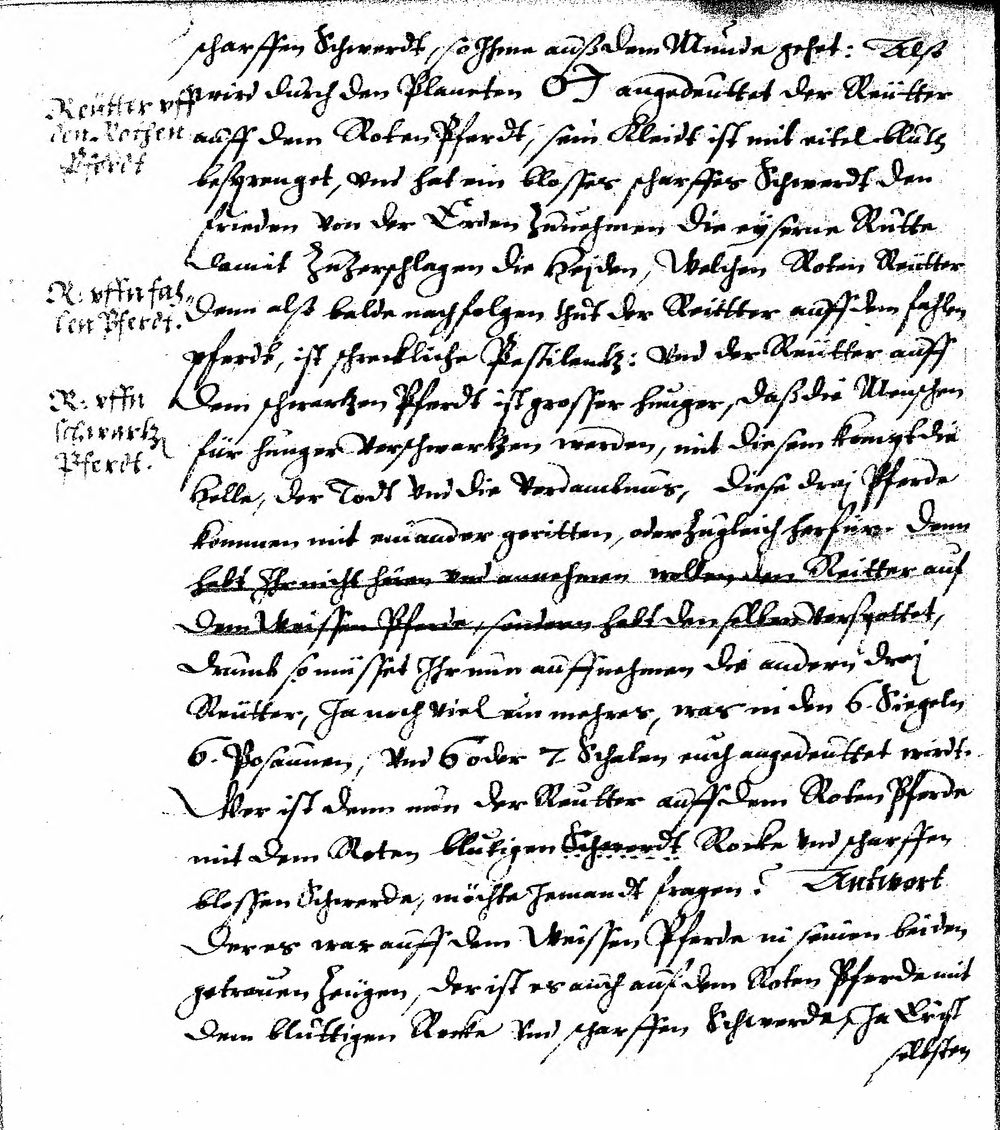 scharffen Schwerdt, so Ihme auß dem Munde gehet: Alß
wird durch den Planeten ♂ angedeuttet der Reutter
Reütter vff
den Rothen
Pferdt
auff dem Roten Pferdt, sein Kleidt ist mit eitel bluth
besprenget, vnd hat ein blosses scharffes Schwerdt den
frieden von der Erden Zunehmen die eyserne Rutte
damit Zuzerschlagen die Heyden, Welchen Roten Reutter
R: vffn fah-
len Pferdt.
denn alß balde nachfolgen thut der Reittter auff dem fahlen
pferdt, ist schreckliche Pestilentz: Vnd der Reutter auff
R: vffn
schwartz
Pferdt.
dem schwartzen Pferdt ist grosser hunger, daß die Menschen
für hunger verschwartzen werden, mit diesem kompt die
Helle, der Todt vnd die Verdambnus, diese drej Pferde
kommen mit einander geritten, oder Zugleich herfür. Denn
habt Ihr nicht hören vnd annehmen wollen den Reitter auf
dem Weissen Pferde, sondern habt denselben verspottet,
drumb so müsset Ihr nun auffnehmen die andern drej
Reutter, Ja noch viel ein mehres, was in den 6. Siegeln
6. Posaunen, vnd 6 oder 7 Schalen euch angedeuttet wirdt.
Wer ist denn nun der Reutter auff dem Roten Pferde
mit dem Roten blutigen Schwerdt Rocke vnd scharffen
blossen Schwerde, möchte Jemandt fragen? Antwort
Der es war auff dem Weissen Pferde in seinen beiden
getreuen Zeugen, der ist es auch auf dem Roten Pferde mit
dem bluttigen Rocke vnd scharffen Schwerde, Ja Er ist
selbsten